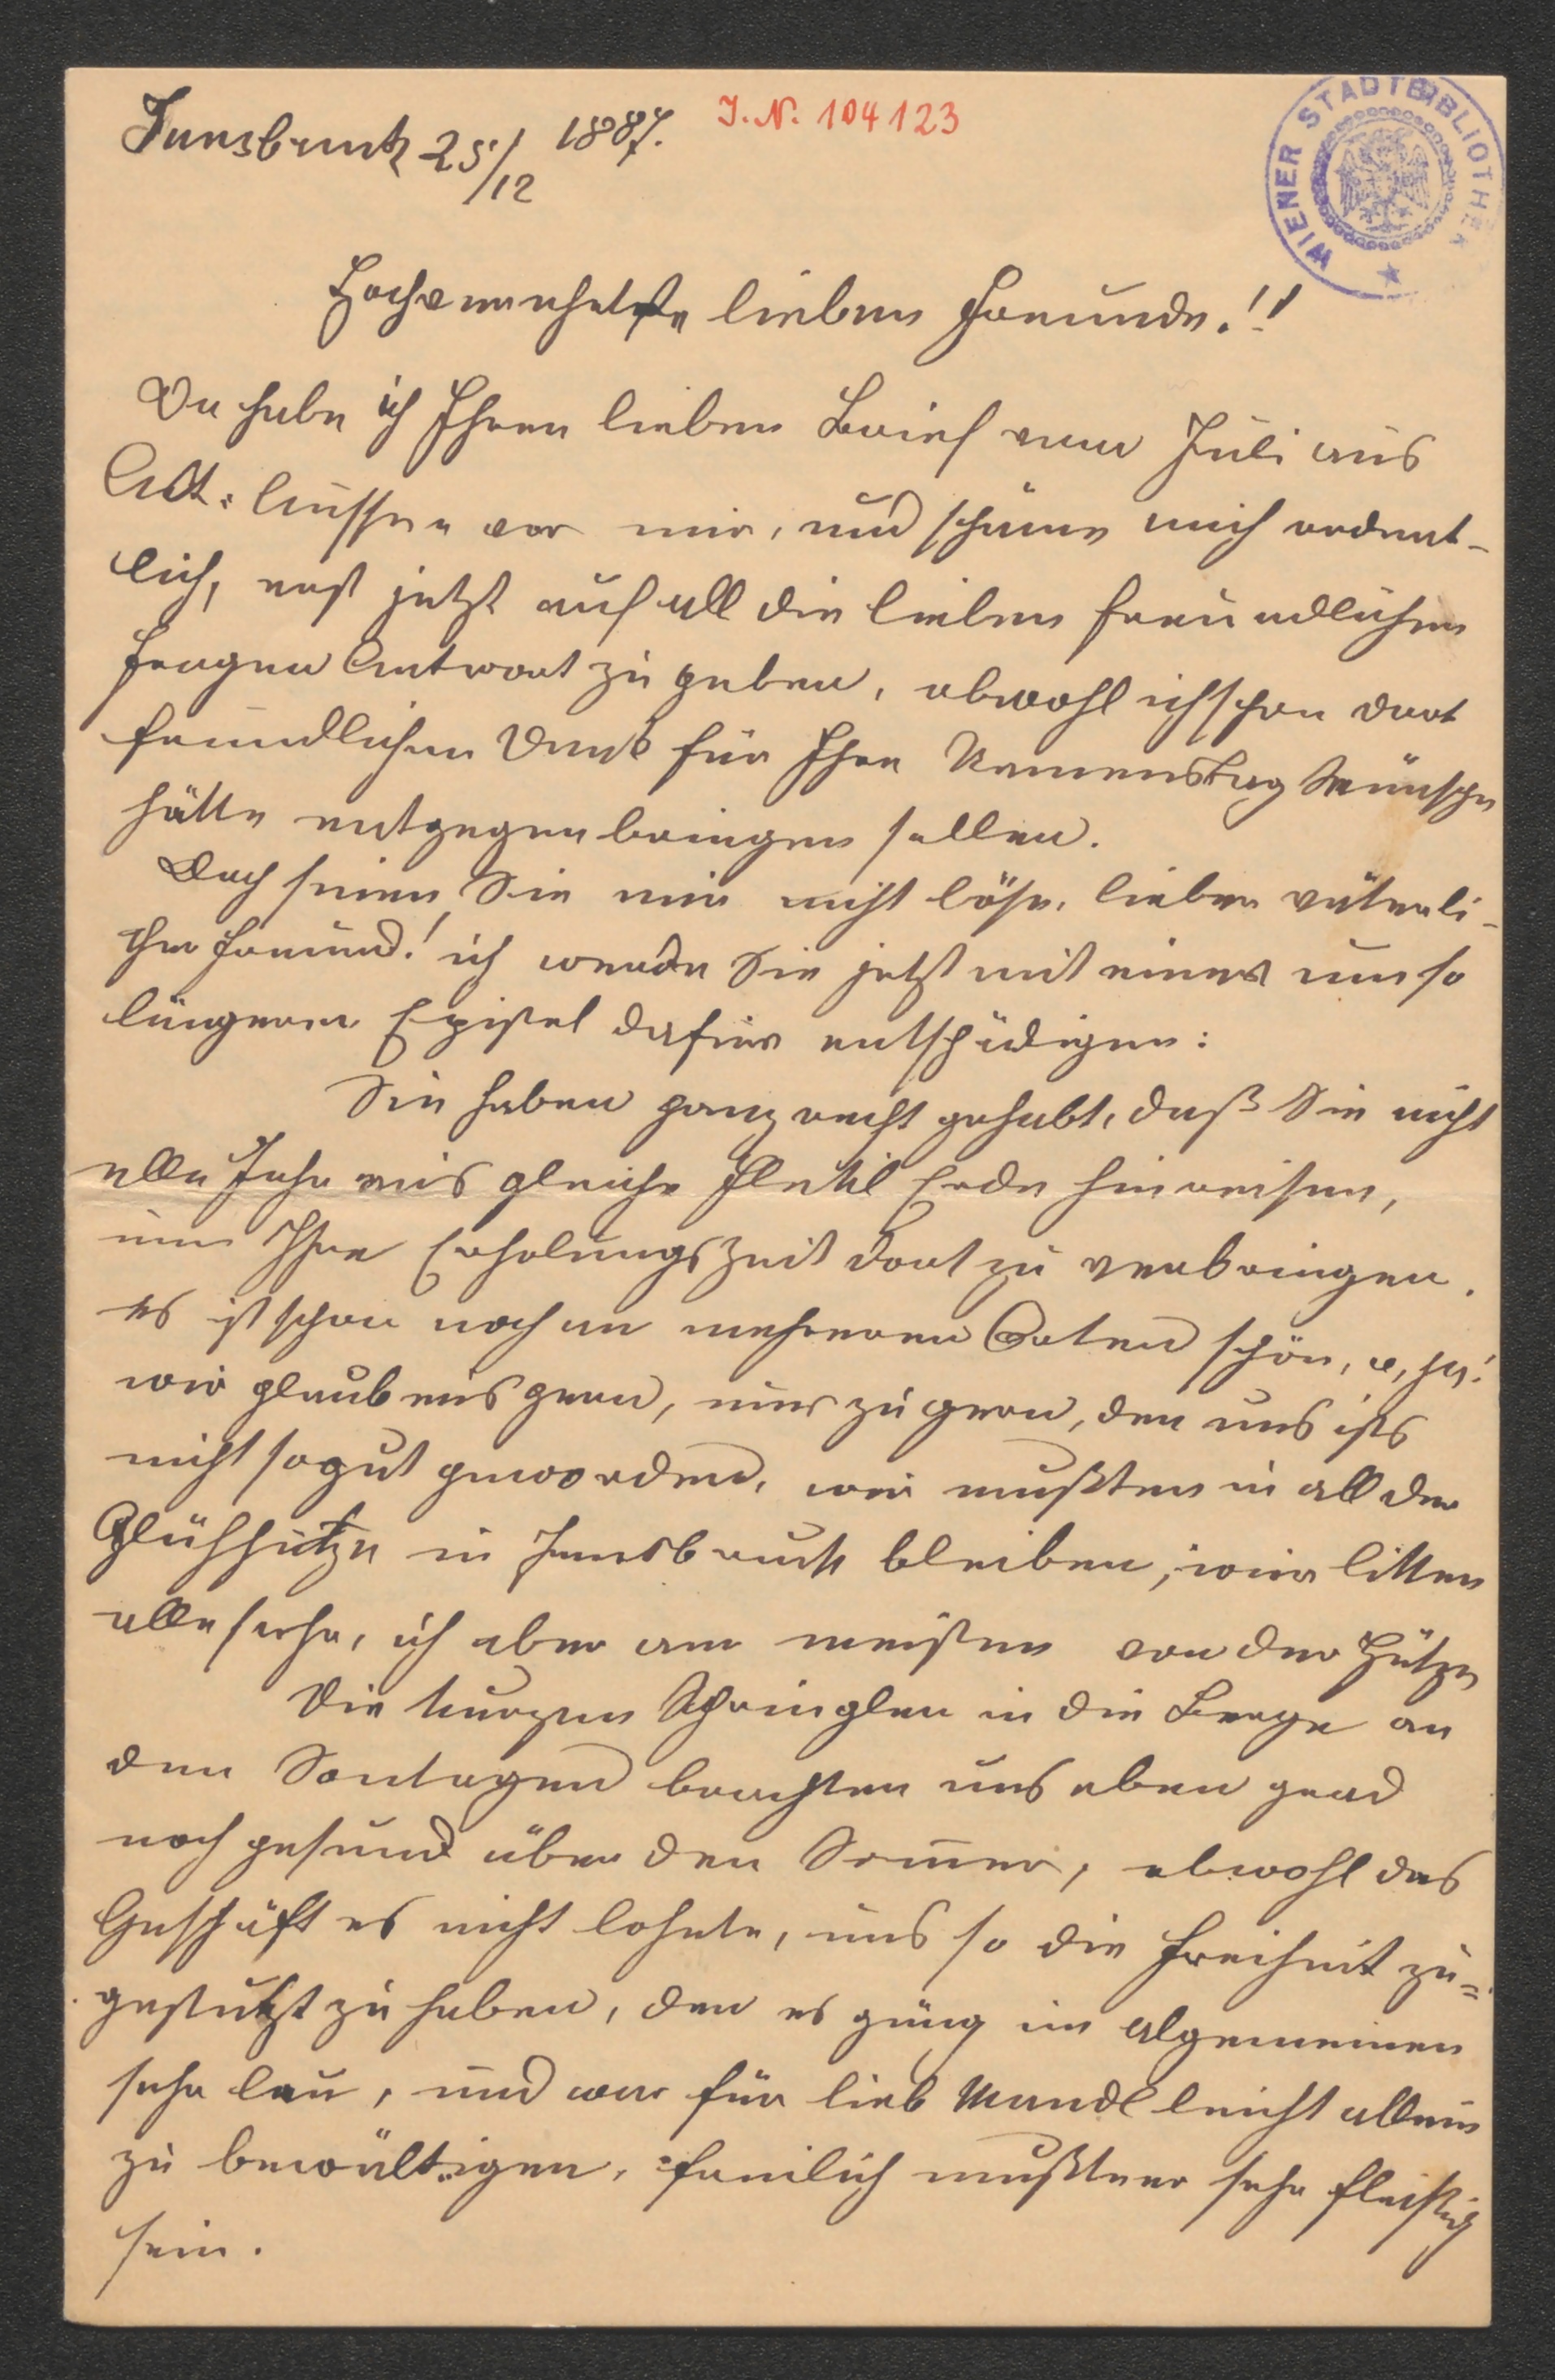 Innsbruck 25/12 1887.
J. N. 104123
WIENER STADTBIBLIOTHEK
Hochverehrteste lieber Freunde!!
Da habe ich Ihren lieben Brief vom Juli aus
Alt-Aussee vor mir, und schäme mich ordent-
lich, erst jetzt auf all die lieben freundlichen
Fragen Antwort zu geben, obwohl ich schon dort
freundlichen Dank für Ihre Namenstag Wünsche
hätte entgegenbringen sollen.
Doch seien Sie mir nicht böse, lieber väterli-
cher Freund! ich werde Sie jetzt mit einer um so
längeren Epistel dafür entschädigen:
Sie haben ganz recht gehabt, daß Sie nicht
alle Jahr aufs gleiche Fleckl Erde hinreisen,
um Ihre Erholungszeit dort zu verbringen.
es ist schon noch an mehreren Orten schön, o, ja!
wir glaubens gern, nur zu gern, den uns ists
nicht so gut geworden, wir mußten in all der
Glühhitze in Innsbruck bleiben, wir litten
alle sehr, ich aber am meisten von der Hitze
Die kurzen Springlen in die Berge an
den Sontagen brachten uns eben grad
noch gesund über den Sommer, obwohl das
Geschäft es nicht lohnte, uns so die Freiheit zu=
gestutzt zu haben, den es ging im algemeinen
sehr lau, und war für lieb Mandl leicht allein
zu bewältigen, freilich mußte er sehr fleißig
sein.